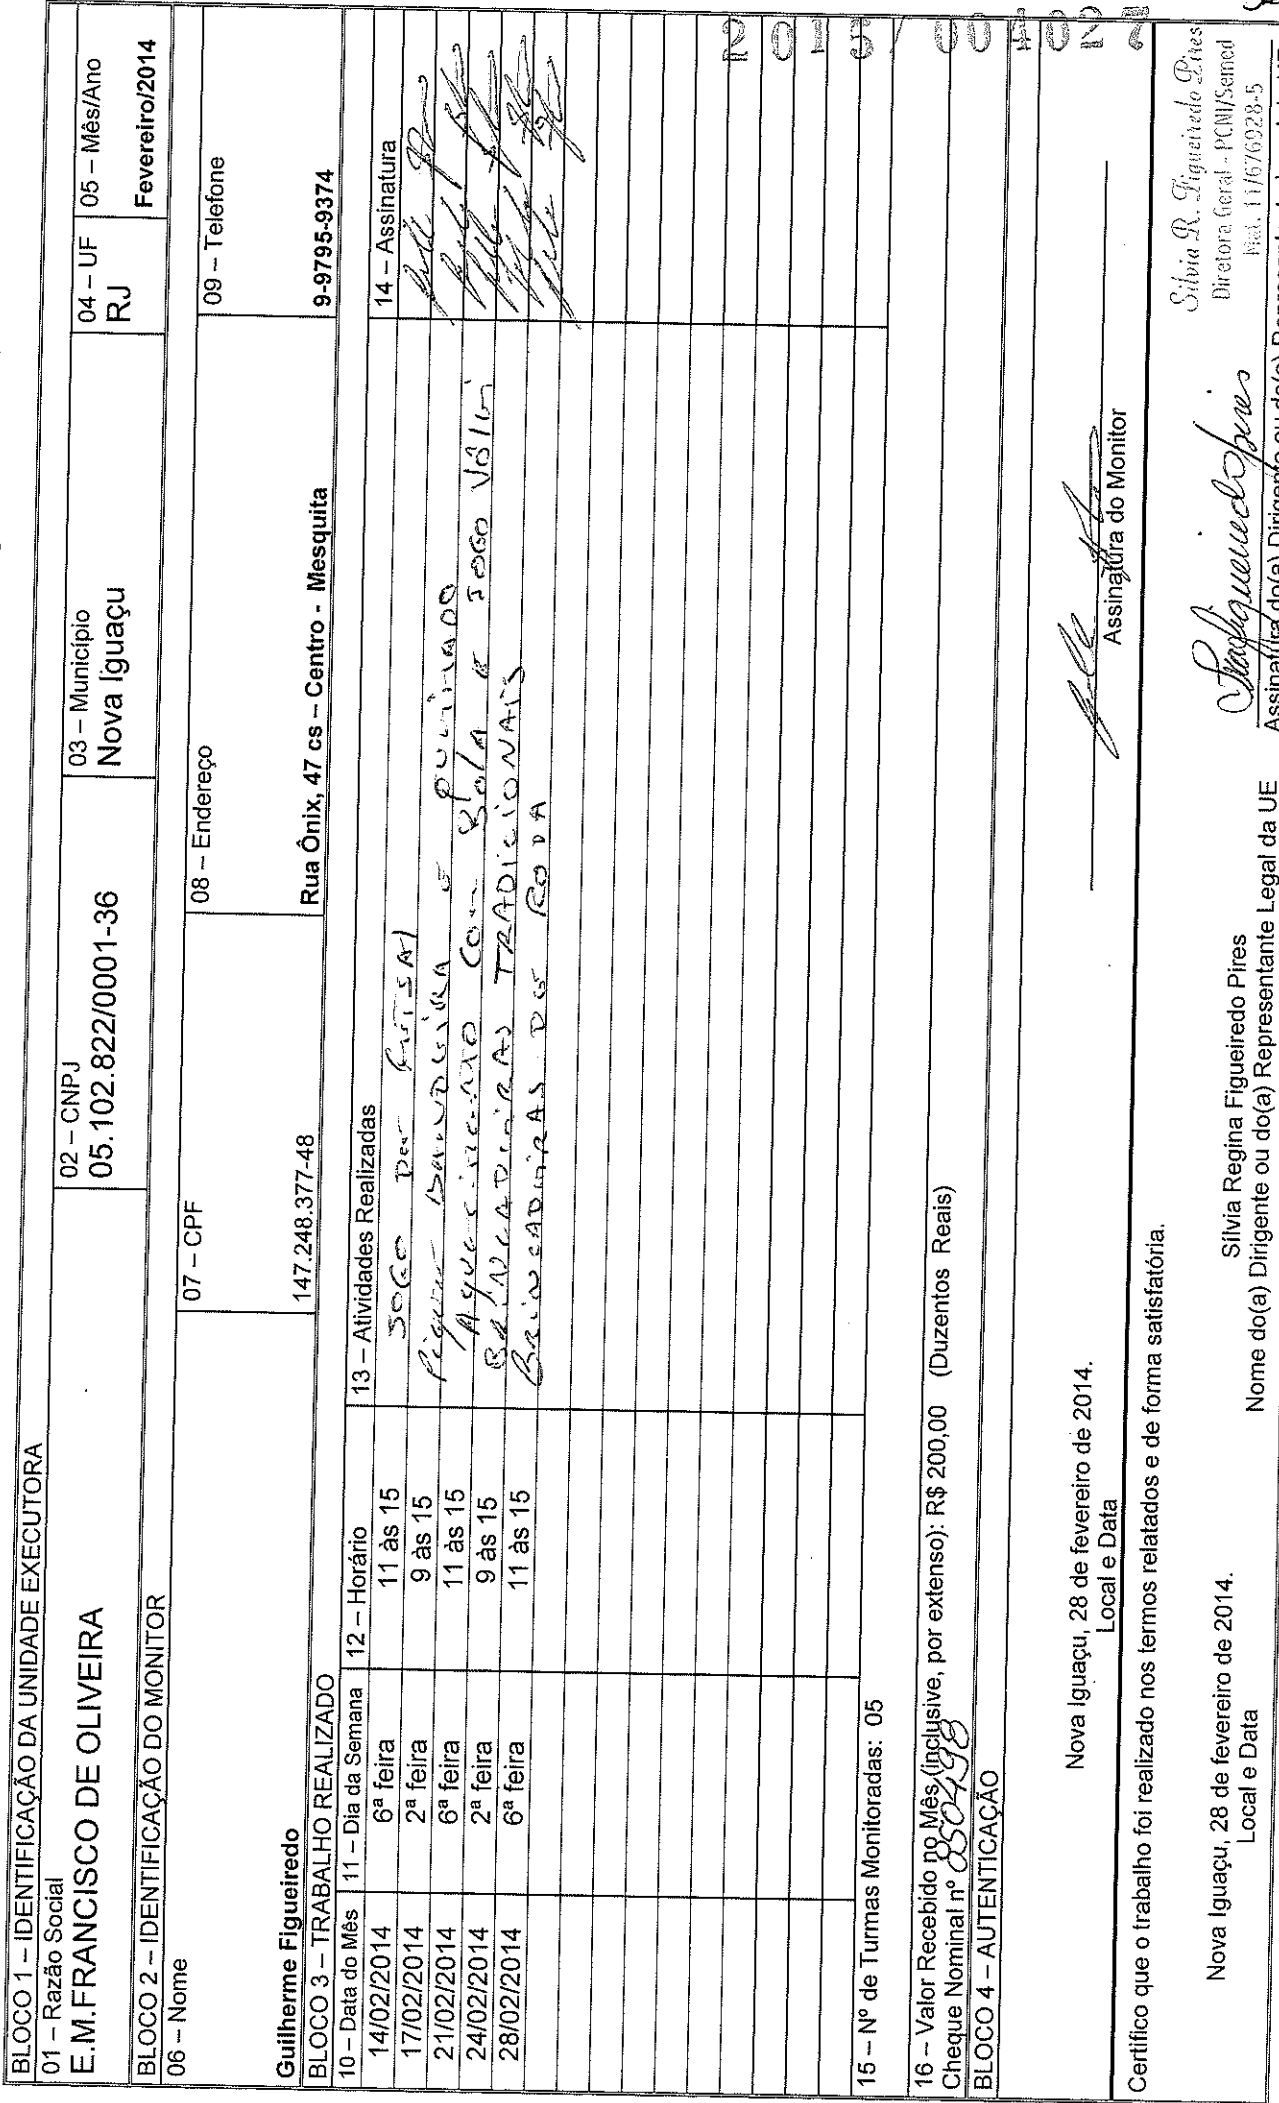 BLOCO 1 – IDENTIFICAÇÃO DA UNIDADE EXECUTORA
01 – Razão Social
E.M.FRANCISCO DE OLIVEIRA
02 – CNPJ
05.102.822/0001-36
03 – Município
Nova Iguaçu
04 – UF
RJ
05 – Mês/Ano
Fevereiro/2014
BLOCO 2 – IDENTIFICAÇÃO DO MONITOR
06 – Nome
Guilherme Figueiredo
07 – CPF
147.248.377-48
08 – Endereço
Rua Ônix, 47 cs – Centro - Mesquita
09 – Telefone
9-9795-9374
BLOCO 3 – TRABALHO REALIZADO
10 – Data do Mês 11 – Dia da Semana 12 – Horário 13 – Atividades Realizadas 14 – Assinatura
14/02/2014 6ª feira 11 às 15 JOGO DE FUTSAL
17/02/2014 2ª feira 9 às 15 Pique BANDEIRA E QUEIMADO
21/02/2014 6ª feira 11 às 15 Aquecimento Com Bola E JOGO VÔLEI
24/02/2014 2ª feira 9 às 15 BRINCADEIRAS TRADICIONAIS
28/02/2014 6ª feira 11 às 15 BRINCADEIRAS DE RODA
15 – Nº de Turmas Monitoradas: 05
16 – Valor Recebido no Mês (inclusive, por extenso): R$ 200,00 (Duzentos Reais)
Cheque Nominal nº 850498
BLOCO 4 – AUTENTICAÇÃO
Nova Iguaçu, 28 de fevereiro de 2014.
Local e Data
Assinatura do Monitor
Certifico que o trabalho foi realizado nos termos relatados e de forma satisfatória.
Nova Iguaçu, 28 de fevereiro de 2014.
Local e Data
Sílvia Regina Figueiredo Pires
Nome do(a) Dirigente ou do(a) Representante Legal da UE
Assinatura do(a) Dirigente ou do(a)
Silvia R. Figueiredo Pires
Diretora Geral - PCNI/Semed
Mat. 11/676928-5
2015/004027